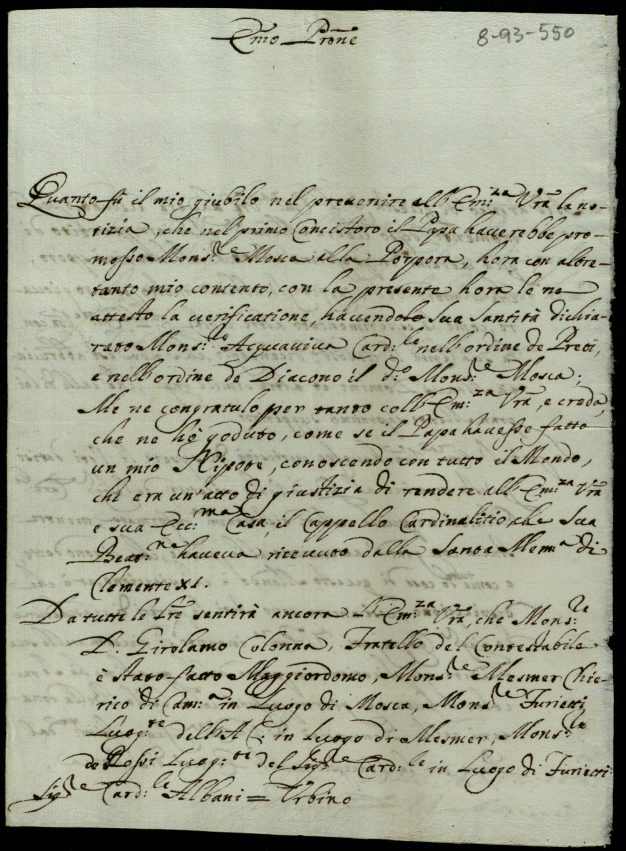 8-93-550
Emo Prone
Quanto fù il mio giubilo nel prevenire all'Em:za Vra la no-
tizia, che nel primo Concistoro il Papa haverebbe pro-
mosso Mons:re Mosca alla Porpora, hora con altre-
tanto mio contento, con la presente hora le ne
attesto la verificatione, havendo Sua Santità dichia-
rato Mons:re Acquaviva Card:le nell'ordine de Preti,
e nell'ordine de Diacono il d:o Mons:re Mosca;
Me ne congratulo per tanto coll'Em:za Vra, e creda
che ne hò goduto, come se il Papa havesse fatto
un mio Nipote, conoscendo con tutto il Mondo,
che era un'atto di giustizia di rendere all'Em:za Vra
e sua Ecc:ma Casa, il Cappello Cardinalitio che Sua
Beat:ne haveva ricevuto dalla Santa Mem:a di
Clemente XI.
Da tutte le Lre sentirà ancora l'Em:za Vra, che Mons:re
D. Girolamo Colonna, Fratello del Contestabile
è stato fatto Maggiordomo, Mons:re Mesmer Chie-
rico di Cam:a in Luogo di Mosca, Mons:re Furietti
Luog:te dell'A.C: in luogo di Mesmer, Mons:re
de Rossi Luog:te del Sig:re Card:le in Luogo di Furietti
Sig:re Card:le Albani = Urbino